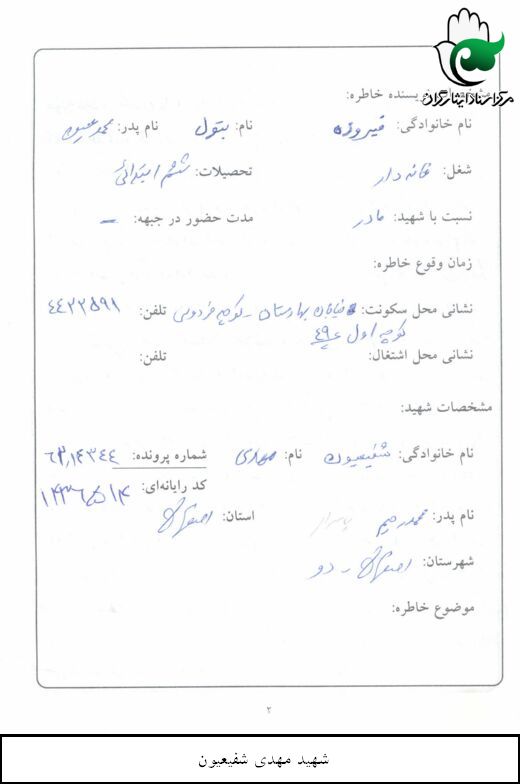 مرکز اسناد ایثارگران
مشخصات نویسنده خاطره:
نام خانوادگی: فیروزه نام: بتول نام پدر: محمدحسین
شغل: خانه دار تحصیلات: ششم ابتدائی
نسبت با شهید: مادر مدت حضور در جبهه: –
زمان وقوع خاطره:
نشانی محل سکونت: خیابان بهارستان - کوچه فردوسی تلفن: ٤٤٢٢٥٩١
کوچه اول پ ٤٩
نشانی محل اشتغال: تلفن:
مشخصات شهید:
نام خانوادگی: شفیعیون نام: مهدی شماره پرونده: ٦٢,١٤٣٤٤
کد رایانه‌ای:
نام پدر: محمدرحیم استان: اصفهان
شهرستان: اصفهان - دو
موضوع خاطره:
۲
شهید مهدی شفیعیون